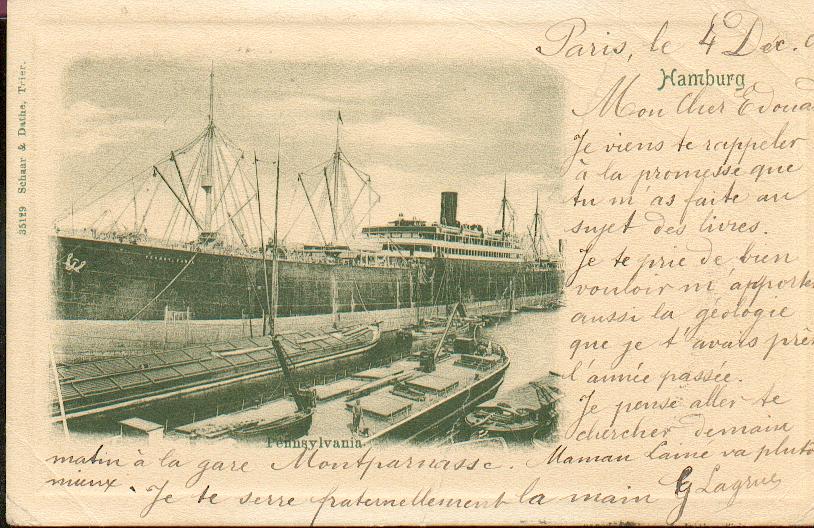 Paris, le 4 Déc.
Hamburg
Mon Cher Edoua
Je viens te rappeler
à la promesse que
tu m'as faite au
sujet des livres.
Je te prie de bien
vouloir m'apporte
aussi la géologie
que je t'avais prê
l'année passée.
Je pense aller te
chercher demain
matin à la gare Montparnasse. Maman Laine va plutô
mieux. Je te serre fraternellement la main G Lagrue
Pennsylvania
35129 Schaar & Dathe, Trier.